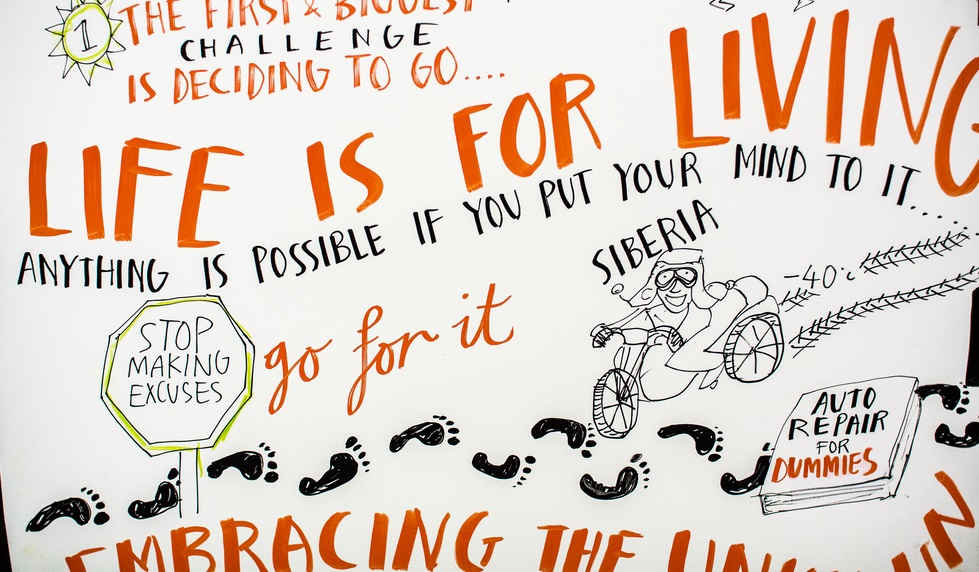 1
THE FIRST & BIGGEST
CHALLENGE
IS DECIDING TO GO....
LIFE IS FOR LIVING
ANYTHING IS POSSIBLE IF YOU PUT YOUR MIND TO IT.....
SIBERIA
-40°c
STOP
MAKING
EXCUSES
go for it
AUTO
REPAIR
FOR
DUMMIES
EMBRACING THE